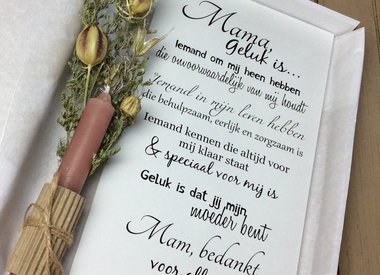 Mama,
Geluk is...
Iemand om mij heen hebben
die onvoorwaardelijk van mij houdt
Iemand in mijn leven hebben
die behulpzaam, eerlijk en zorgzaam is
Iemand kennen die altijd voor
mij klaar staat
& speciaal voor mij is
Geluk is dat jij mijn
moeder bent
Mam, bedankt
voor